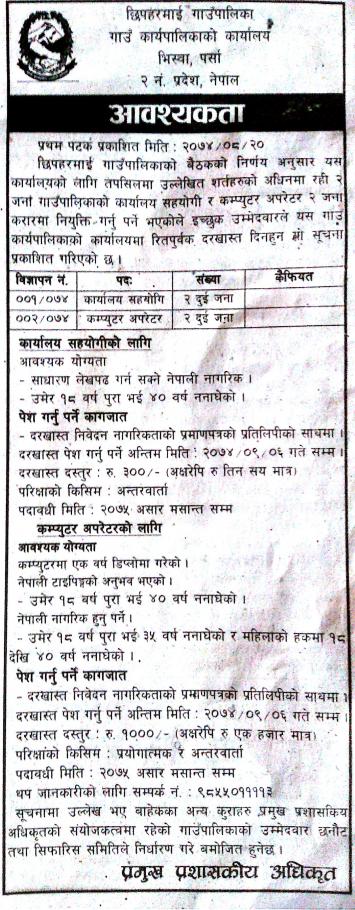 छिपहरमाई गाउँपालिका
गाउँ कार्यपालिकाको कार्यालय
भिस्वा, पर्सा
२ नं. प्रदेश, नेपाल
आवश्यकता
प्रथम पटक प्रकाशित मिति : २०७४/०८/२०
छिपहरमाई गाउँपालिकाको बैठकको निर्णय अनुसार यस
कार्यालयको लागि तपसिलमा उल्लेखित शर्तहरुको अधिनमा रही २
जना गाउँपालिकाको कार्यालय सहयोगी र कम्प्युटर अपरेटर २ जना
करारमा नियुक्ति गर्नु पर्ने भएकोले इच्छुक उम्मेदवारले यस गाउँ
कार्यपालिकाको कार्यालयमा रितपुर्वक दरखास्त दिनहुन यो सूचना
प्रकाशित गरिएको छ ।
विज्ञापन नं. पदः संख्या कैफियत
००१/०७४ कार्यालय सहयोगि २ दुई जना
००२/०७४ कम्प्युटर अपरेटर २ दुई जना
कार्यालय सहयोगीको लागि
आवश्यक योग्यता
- साधारण लेखपढ गर्न सक्ने नेपाली नागरिक ।
- उमेर १८ वर्ष पुरा भई ४० वर्ष ननाघेको ।
पेश गर्नु पर्ने कागजात
- दरखास्त निवेदन नागरिकताको प्रमाणपत्रको प्रतिलिपीको साथमा ।
दरखास्त पेश गर्नु पर्ने अन्तिम मिति : २०७४/०९/०६ गते सम्म ।
दरखास्त दस्तुर : रु. ३००/- (अक्षरेपि रु तिन सय मात्र)
परिक्षाको किसिम : अन्तरवार्ता
पदावधी मिति : २०७५ असार मसान्त सम्म
कम्प्युटर अपरेटरको लागि
आवश्यक योग्यता
कम्प्युटरमा एक वर्ष डिप्लोमा गरेको ।
नेपाली टाइपिङ्गको अनुभव भएको ।
- उमेर १८ वर्ष पुरा भई ४० वर्ष ननाघेको ।
नेपाली नागरिक हुनु पर्ने ।
- उमेर १८ वर्ष पुरा भई ३५ वर्ष ननाघेको र महिलाको हकमा १८
देखि ४० वर्ष ननाघेको ।
पेश गर्नु पर्ने कागजात
- दरखास्त निवेदन नागरिकताको प्रमाणपत्रको प्रतिलिपीको साथमा ।
दरखास्त पेश गर्नु पर्ने अन्तिम मिति : २०७४/०९/०६ गते सम्म ।
दरखास्त दस्तुर : रु. १०००/- (अक्षरेपि रु एक हजार मात्र)
परिक्षाको किसिम : प्रयोगात्मक र अन्तरवार्ता
पदावधी मिति : २०७५ असार मसान्त सम्म
थप जानकारीको लागि सम्पर्क नं. : ९८५५०११११३
सूचनामा उल्लेख भए बाहेकका अन्य कुराहरु प्रमुख प्रशासकिय
अधिकृतको संयोजकत्वमा रहेको गाउँपालिकाको उम्मेदवार छनौट
तथा सिफारिस समितिले निर्धारण गरे बमोजित हुनेछ ।
प्रमुख प्रशासकीय अधिकृत